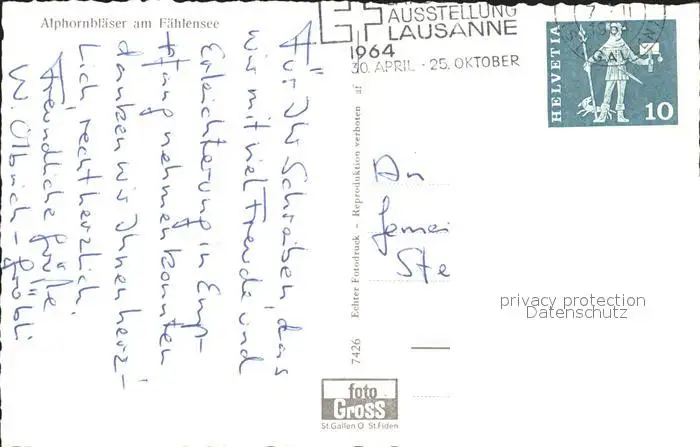 Alphornbläser am Fählensee
AUSSTELLUNG
LAUSANNE
1964
30. APRIL - 25. OKTOBER
HELVETIA
10
Für Ihr Schreiben, das
wir mit viel Freude und
Erleichterung in Emp-
fang nehmen konnten
danken wir Ihnen herz-
lich, recht herzlich.
Freundliche Grüße.
W. Olbrich -
7426 Echter Fotodruck - Reproduktion verboten af
An
Gemei
Ste
privacy protection
Datenschutz
foto
Gross
St.Gallen O St.Fiden